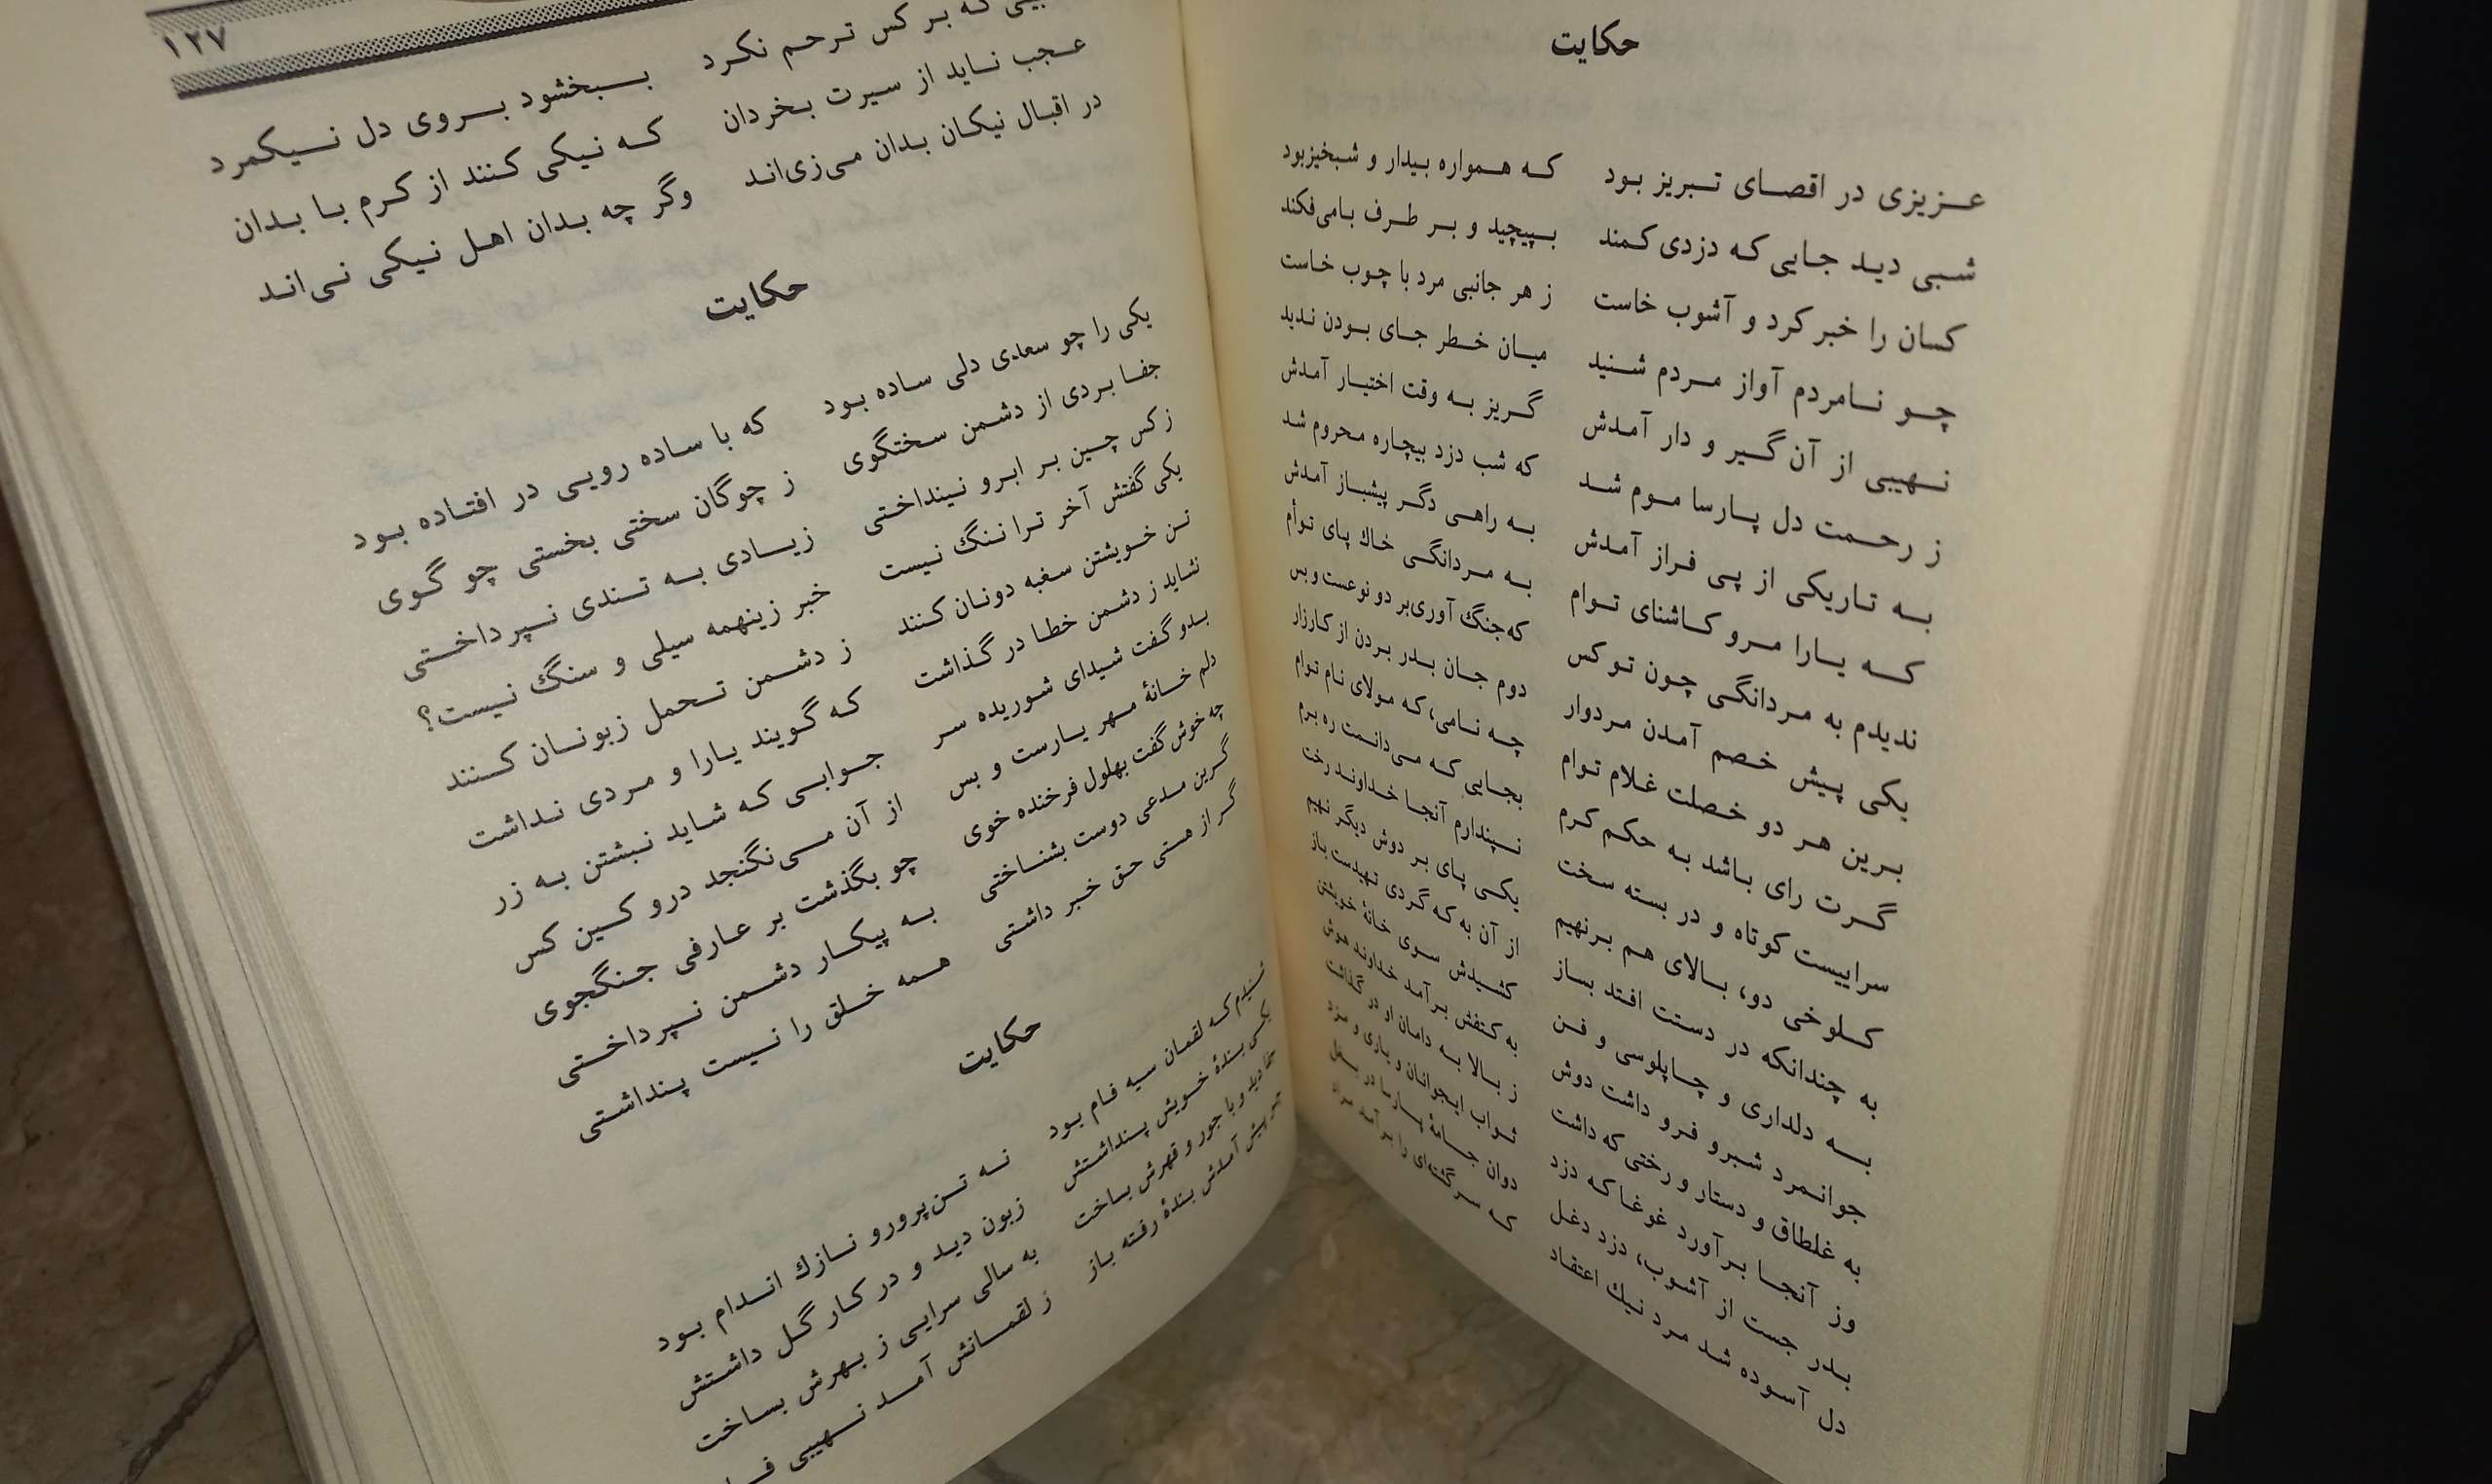 حکایت
عزیزی در اقصای تبریز بود که همواره بیدار و شبخیزبود
شبی دید جایی که دزدی کمند بپیچید و بر طرف بامی‌فکند
کسان را خبر کرد و آشوب خاست ز هر جانبی مرد با چوب خاست
چو نامردم آواز مردم شنید میان خطر جای بودن ندید
نهیبی از آن گیر و دار آمدش گریز به وقت اختیار آمدش
ز رحمت دل پارسا موم شد که شب دزد بیچاره محروم شد
به تاریکی از پی فراز آمدش به راهی دگر پیشباز آمدش
که یارا مرو کاشنای توام به مردانگی خاك پای توأم
ندیدم به مردانگی چون تو کس که جنگ آوری بر دو نوعست و بس
یکی پیش خصم آمدن مردوار دوم جان بدر بردن از کارزار
برین هر دو خصلت غلام توام چه نامی، که مولای نام توام
گرت رای باشد به حکم کرم بجایی که می‌دانمت ره برم
سراییست کوتاه و در بسته سخت نپندارم آنجا خداوند رخت
کلوخی دو، بالای هم برنهیم یکی پای بر دوش دیگر نهیم
به چندانکه در دستت افتد بساز از آن به که گردی تهیدست باز
به دلداری و چاپلوسی و فن کشیدش سوی خانهٔ خویشتن
جوانمرد شبرو فرو داشت دوش به کتفش برآمد خداوند هوش
به غلطاق و دستار و رختی که داشت ز بالا به دامان او در گذاشت
وز آنجا برآورد غوغا که دزد ثواب ایجوانان و یاری و مزد
بدر جست از آشوب، دزد دغل دوان جامهٔ پارسا در بغل
دل آسوده شد مرد نیك اعتقاد که سرگشته‌ای را برآمد مراد
۱۲۷
که بر کس ترحم نکرد ببخشود بروی دل نیکمرد
عجب ناید از سیرت بخردان که نیکی کنند از کرم با بدان
در اقبال نیکان بدان می‌زی‌اند وگر چه بدان اهل نیکی نی‌اند
حکایت
یکی را چو سعدی دلی ساده بود که با ساده رویی در افتاده بود
جفا بردی از دشمن سختگوی ز چوگان سختی بخستی چو گوی
ز کس چین بر ابرو نینداختی زیادی به تندی نپرداختی
یکی گفتش آخر ترا ننگ نیست خبر زینهمه سیلی و سنگ نیست؟
تن خویشتن سغبه دونان کنند ز دشمن تحمل زبونان کنند
نشاید ز دشمن خطا در گذاشت که گویند یارا و مردی نداشت
بدو گفت شیدای شوریده سر جوابی که شاید نبشتن به زر
دلم خانهٔ مهر یارست و بس از آن می‌نگنجد درو کین کس
چه خوش گفت بهلول فرخنده خوی چو بگذشت بر عارفی جنگجوی
گرین مدعی دوست بشناختی به پیکار دشمن نپرداختی
گر از هستی حق خبر داشتی همه خلق را نیست پنداشتی
حکایت
شنیدم که لقمان سیه فام بود نه تن‌پرورو نازك اندام بود
یکی بندهٔ خویش پنداشتش زبون دید و در کار گل داشتش
جفا دید و با جور و قهرش بساخت به سالی سرایی ز بهرش بساخت
چو پیش آمدش بندهٔ رفته باز ز لقمانش آمد نهیبی